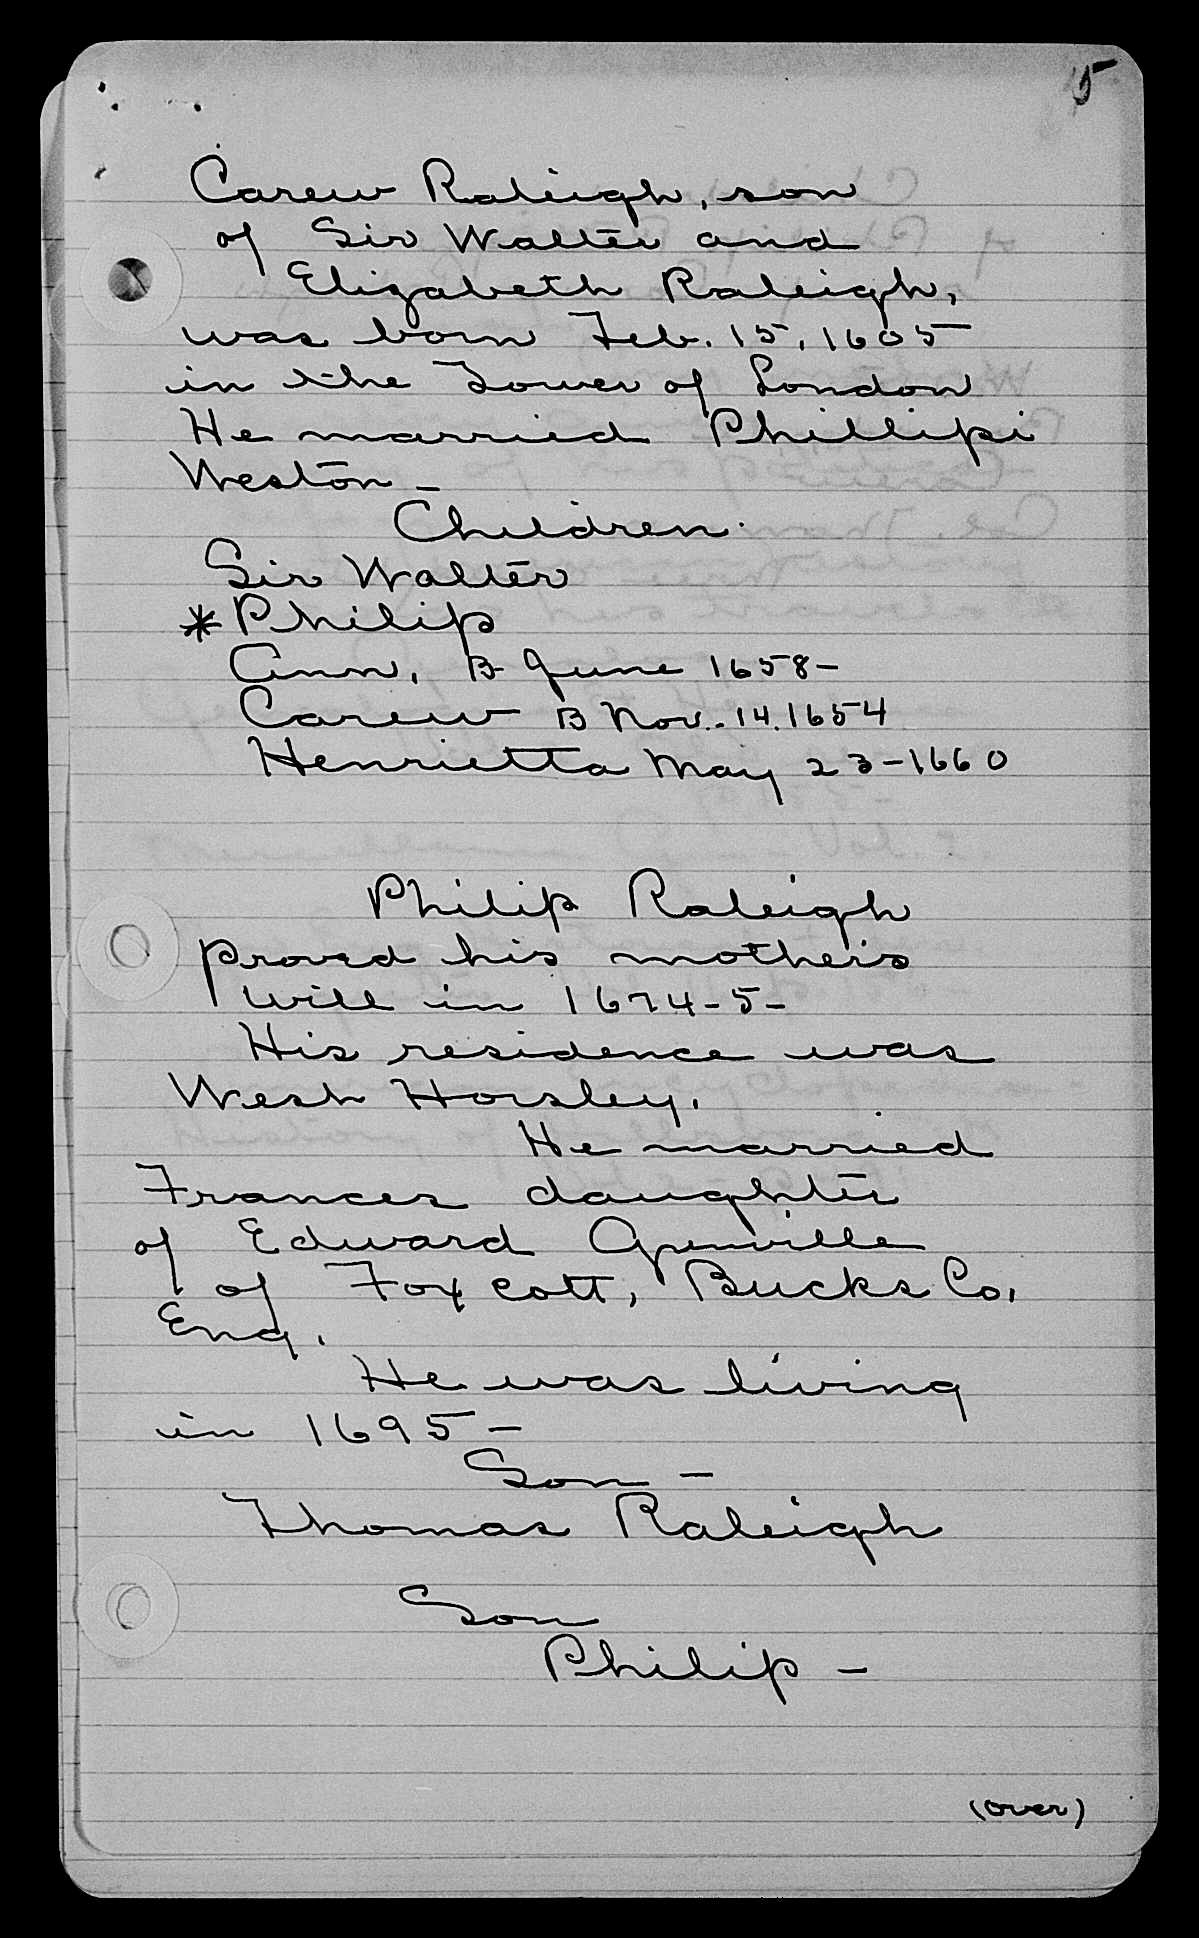 5
Carew Raleigh, son
of Sir Walter and
Elizabeth Raleigh,
was born Feb. 15, 1605
in the Tower of London
He married Phillipi
Weston -
Children.
Sir Walter
* Philip
Ann, B June 1658-
Carew B Nov. 14. 1654
Henrietta May 23-1660
Philip Raleigh
proved his mother's
will in 1674-5-
His residence was
West Horsley.
He married
Frances daughter
of Edward Grenville
of Foxcott, Bucks Co.
Eng.
He was living
in 1695-
Son -
Thomas Raleigh
Son
Philip -
(over)